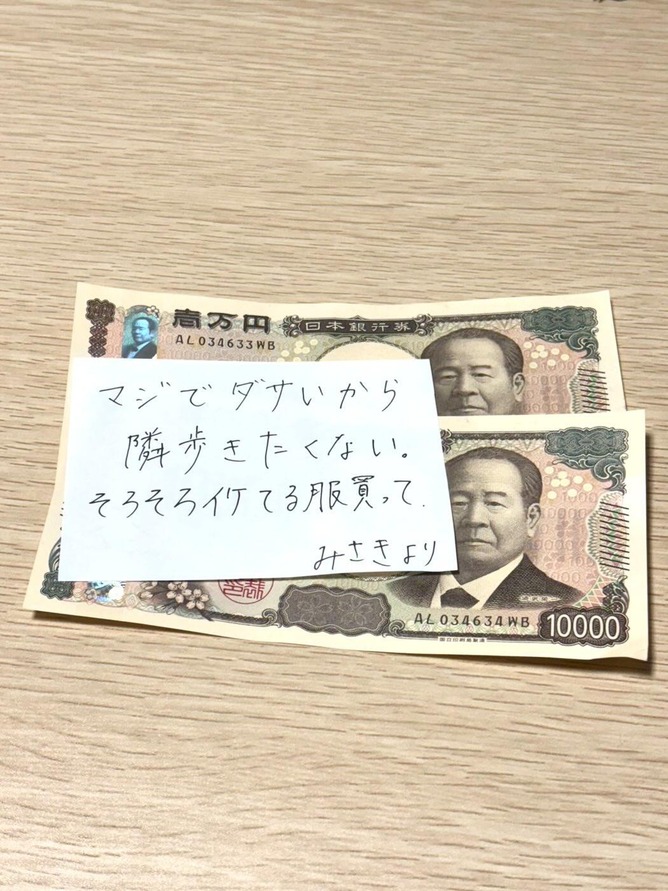 壱万円
日本銀行券
AL034633WB
マジでダサいから
隣歩きたくない。
そろそろイケてる服買って.
みさきより
AL034634WB
10000
国立印刷局製造